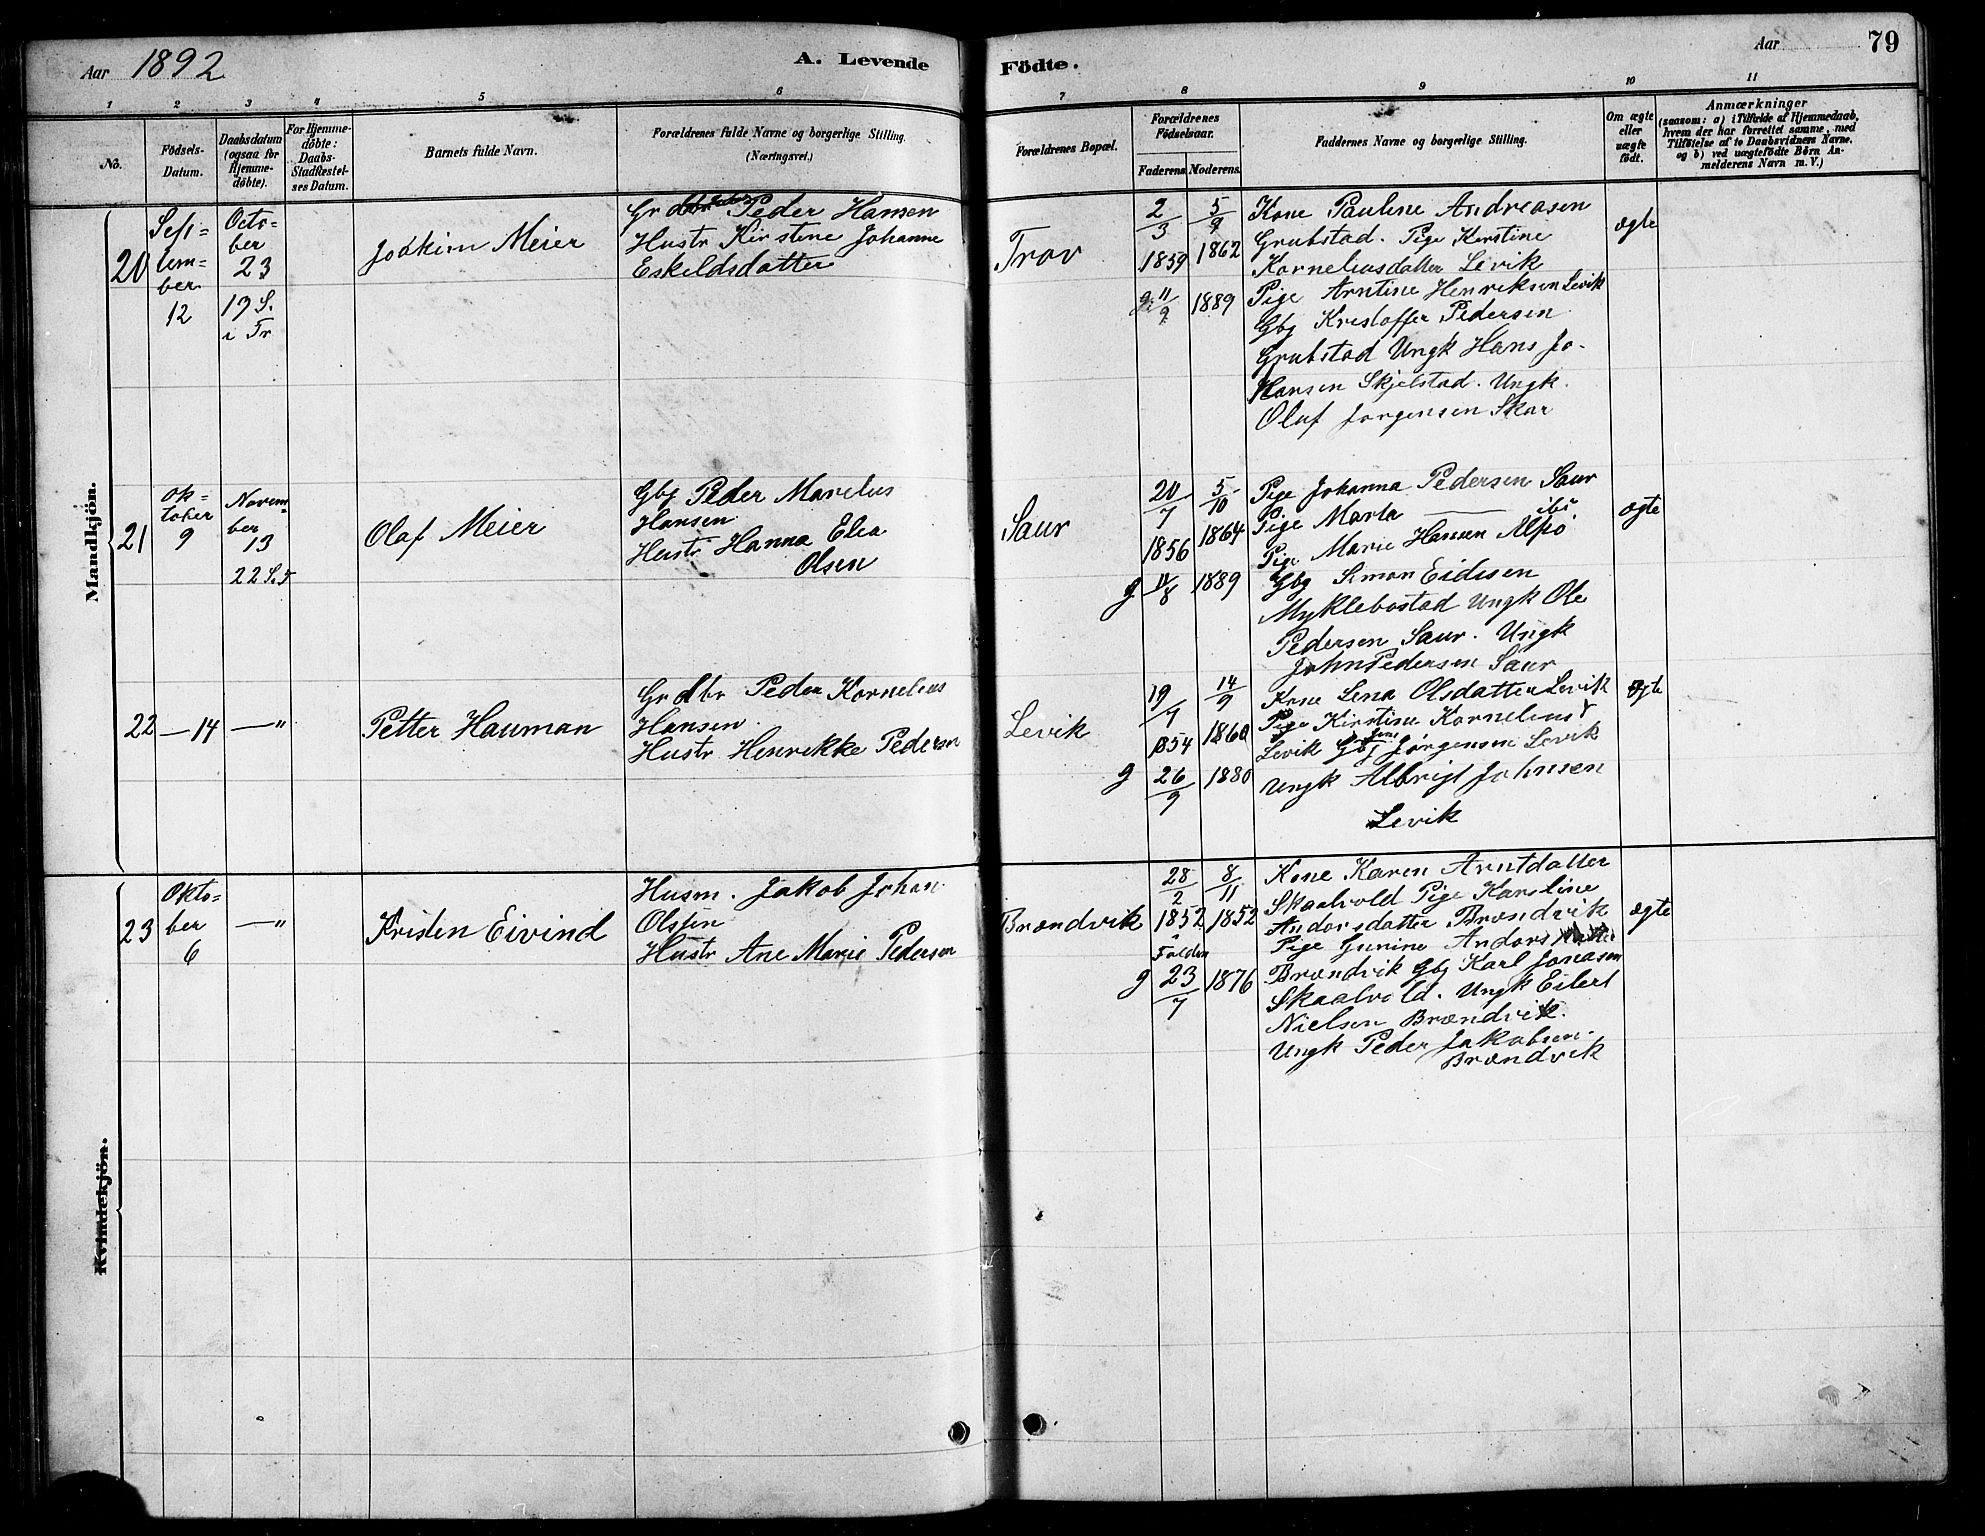 Aar 1892
A. Levende
Födte.
Aar
79
1
2
3
4
5
6
7
8
9
10
11
No.
Födsels-
Datum.
Daabsdatum
(ogsaa for
Hjemme-
döbte).
For Hjemme-
döbte:
Daabs-
Stadfæstel-
ses Datum.
Barnets fulde Navn.
Forældrenes fulde Navne og borgerlige Stilling.
(Næringsvei.)
Forældrenes Bopæl.
Forældrenes
Födselsaar.
Faderens.
Moderens.
Faddernes Navne og borgerlige Stilling.
Om ægte
eller
uægte
födt.
Anmærkninger
(saasom: a) i Tilfælde af Hjemmedaab,
hvem der har forrettet samme, med
Tilföielse af to Daabsvidners Navne,
og b) ved uægtefödte Börn An-
melderens Navn m. V.)
Mandkjön.
20
Sept-
tem-
ber
12
Octo-
ber
23
19 S.
i Tr
Joakim Meier
Grdbr Peder Hansen
Hustr Kirstine Johanne
Eskeldsdatter
Trov
2/3
1859
5/9
1862
g 11/9
1889
Kone Pauline Andreasen
Grubstad. Pige Kerstine
Korneliusdatter Levik
Pige Arntine Henriksen Levik
Gbg Kristoffer Pedersen
Grubstad Ungk Hans Jo-
Hansen Skjelstad. Ungk.
Oluf Jorgensen Skar
ægte
21
Ok-
tober
9
Novem-
ber
13
22 S.
Olaf Meier
Gbg Peder Marelius
Hansen
Hustr Hanna Elea
Olsen
Saur
20/7
1856
5/10
1864
g 11/8
1889
Pige Johanna Pedersen Saur
Pige Marta — ibi
Pige Marie Hansen Alpö
Gbg Simon Eidisen
Myklebostad Ungk Ole
Pedersen Saur. Ungk
John Pedersen Saur
ægte
22
—14
—"
Petter Hauman
Grdbr Peder Kornelius
Hansen.
Hustr Henrikke Pedersn
Levik
19/7
1854
14/9
1860
g 26/9
1880
Kone Lena Olsdatter Levik
Pige Kirstine Kornelius
Levik Gbg Jens Jørgensen Levik
Ungk Albrigt Johnsen
Levik
ægte
Kvindekjön.
23
Okto-
ber
6
—"
Kristen Eivind
Husm. Jakob Johan
Olsen
Hustr Ane Marie Pedersen
Brændvik
28/2
1852
Folden
8/11
1852
g 23/7
1876
Kone Karen Arntdatter
Skaalvold Pige Karoline
Andorsdatter Brændvik
Pige Gurine Andors
Brændvik Gbg Karl Jonasen
Skaalvold. Ungk Eilert
Nielsen Brændvik.
Ungk Peder Jakobsen
Brændvik
ægte